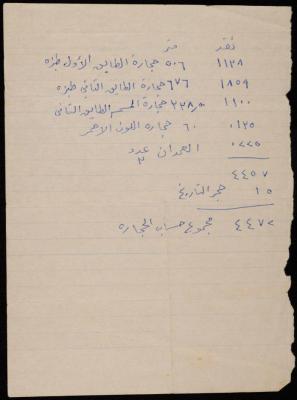 نقد متر
١١٣٨ ٥٠٦ حجارة الطابق الأول طبزه
١٨٥٩ ٦٧٦ حجارة الطابق الثاني طبزه
١١٠٠ ٢٢٨ حجارة المسمسم الطابق الثاني
٠١٣٥ ٦٠ حجاره اللون الاحمر
٠٢٢٥ العمدان عدد ٣
٤٤٥٧
١٥ حجر التاريخ
٤٤٧٢ مجموع حساب الحجاره